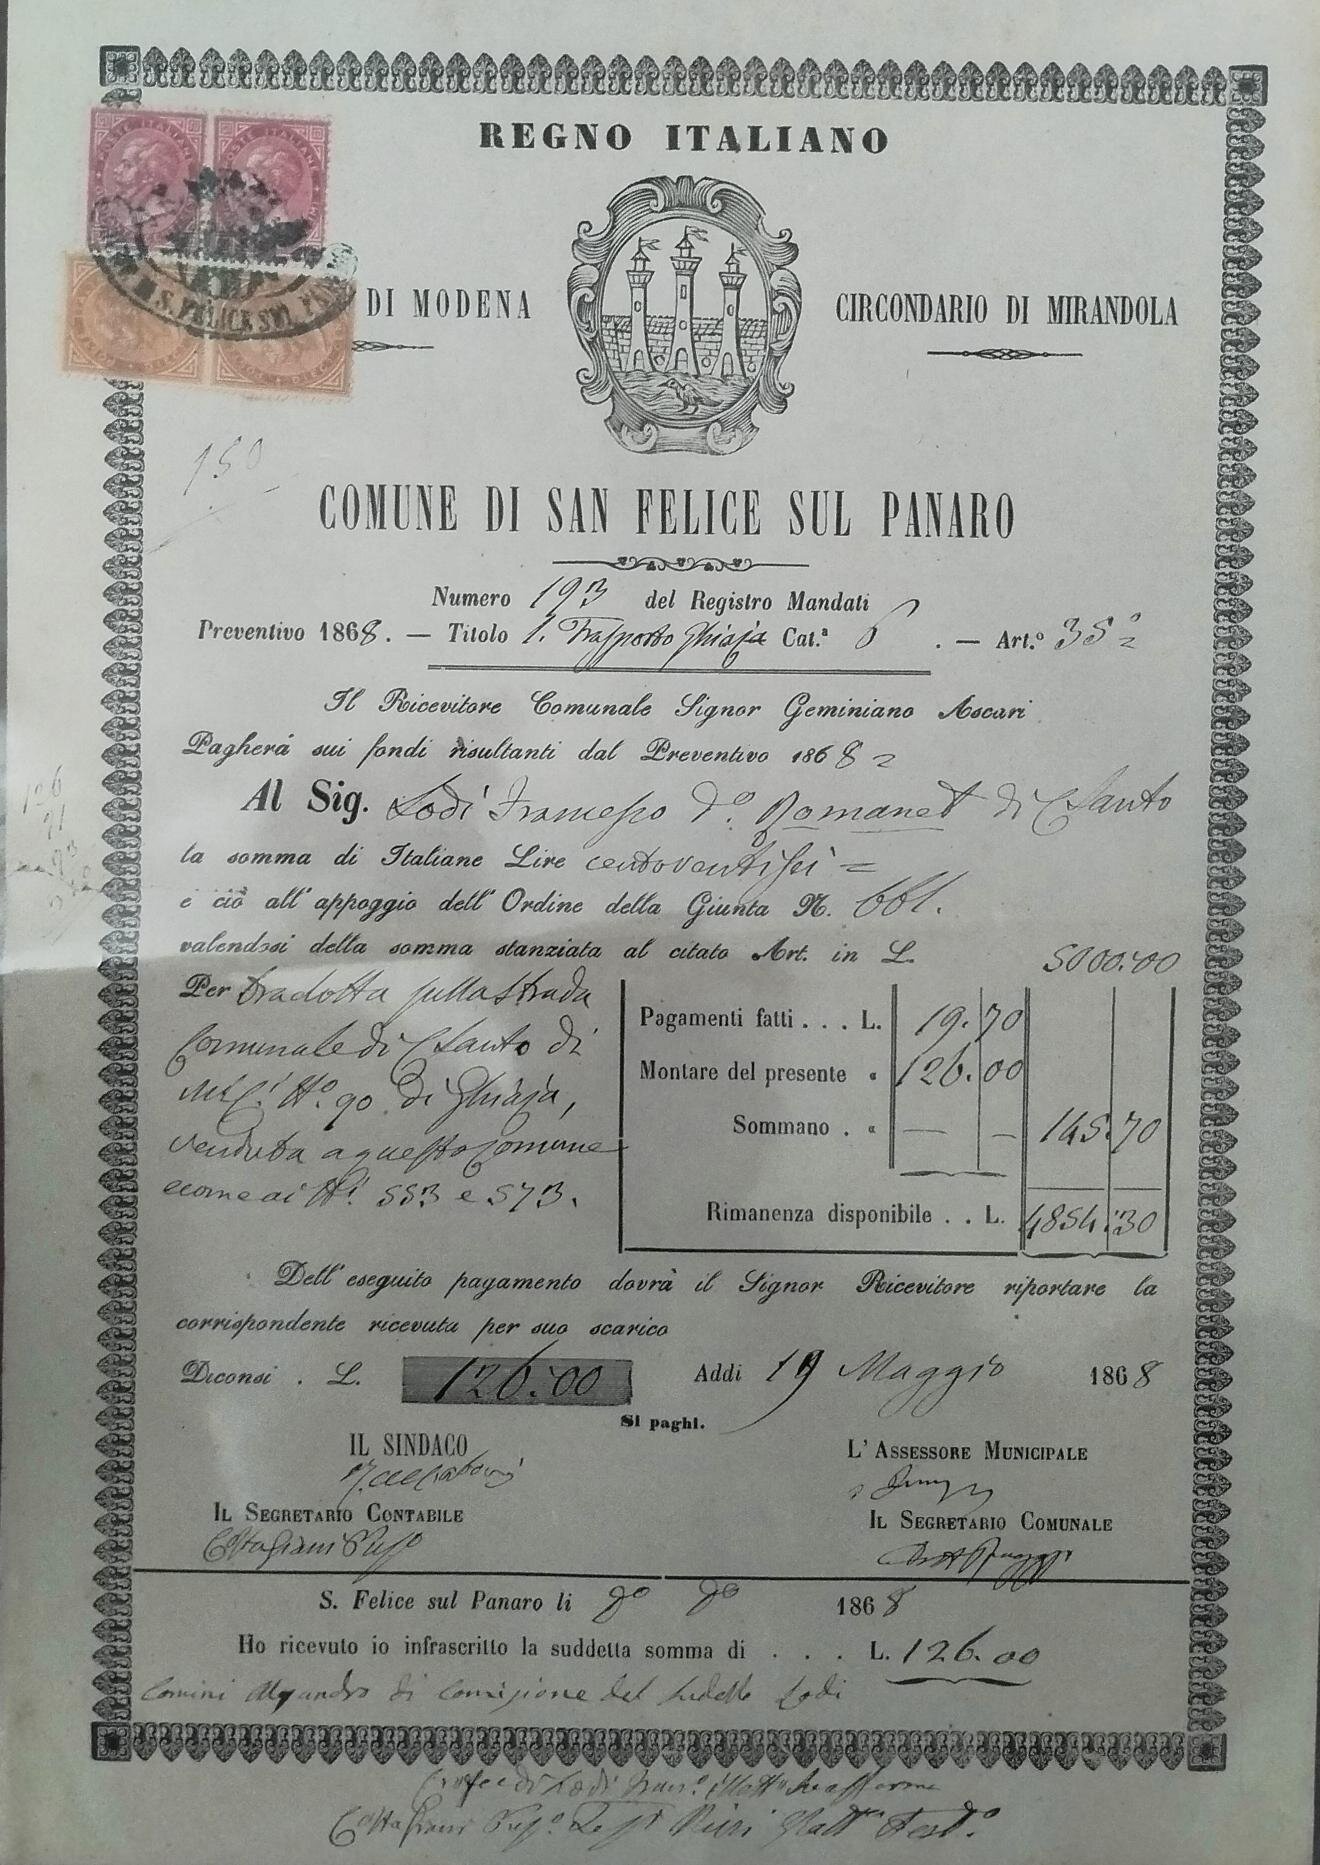 POSTE ITALIANE POSTE ITALIANE
REGNO ITALIANO
S. FELICE SUL PAN
DI MODENA CIRCONDARIO DI MIRANDOLA
150
COMUNE DI SAN FELICE SUL PANARO
Numero 193 del Registro Mandati
Preventivo 1868. — Titolo 1. Trasporto Ghiaja Cat.ª 6 . — Art.º 35º
Il Ricevitore Comunale Signor Geminiano Ascari
Pagherà sui fondi risultanti dal Preventivo 1868
Al Sig. Lodi Francesco dº. Romanet di C Santo
la somma di Italiane Lire centoventisei =
e ciò all' appoggio dell' Ordine della Giunta N. 661.
valendosi della somma stanziata al citato Art. in L. 5000.00
Per tradotta sulla Strada
Comunale di C Santo di
Mt. Nº 90 di Ghiaja,
venduta a questo Comune
e come ai Ni 553 e 573.
Pagamenti fatti . . . L. 19.70
Montare del presente " 126.00
Sommano . " — — 145.70
Rimanenza disponibile . . L. 4854.30
Dell' eseguito pagamento dovrà il Signor Ricevitore riportare la
corrispondente ricevuta per suo scarico
Diconsi . L. 126.00 Addi 19 Maggio 1868
Si paghi.
IL SINDACO L' ASSESSORE MUNICIPALE
IL SEGRETARIO CONTABILE IL SEGRETARIO COMUNALE
S. Felice sul Panaro li dº dº 1868
Ho ricevuto io infrascritto la suddetta somma di . . . L. 126.00
Comini Alessandro di Comissione del sudetto Lodi
Croce di Lodi Franº